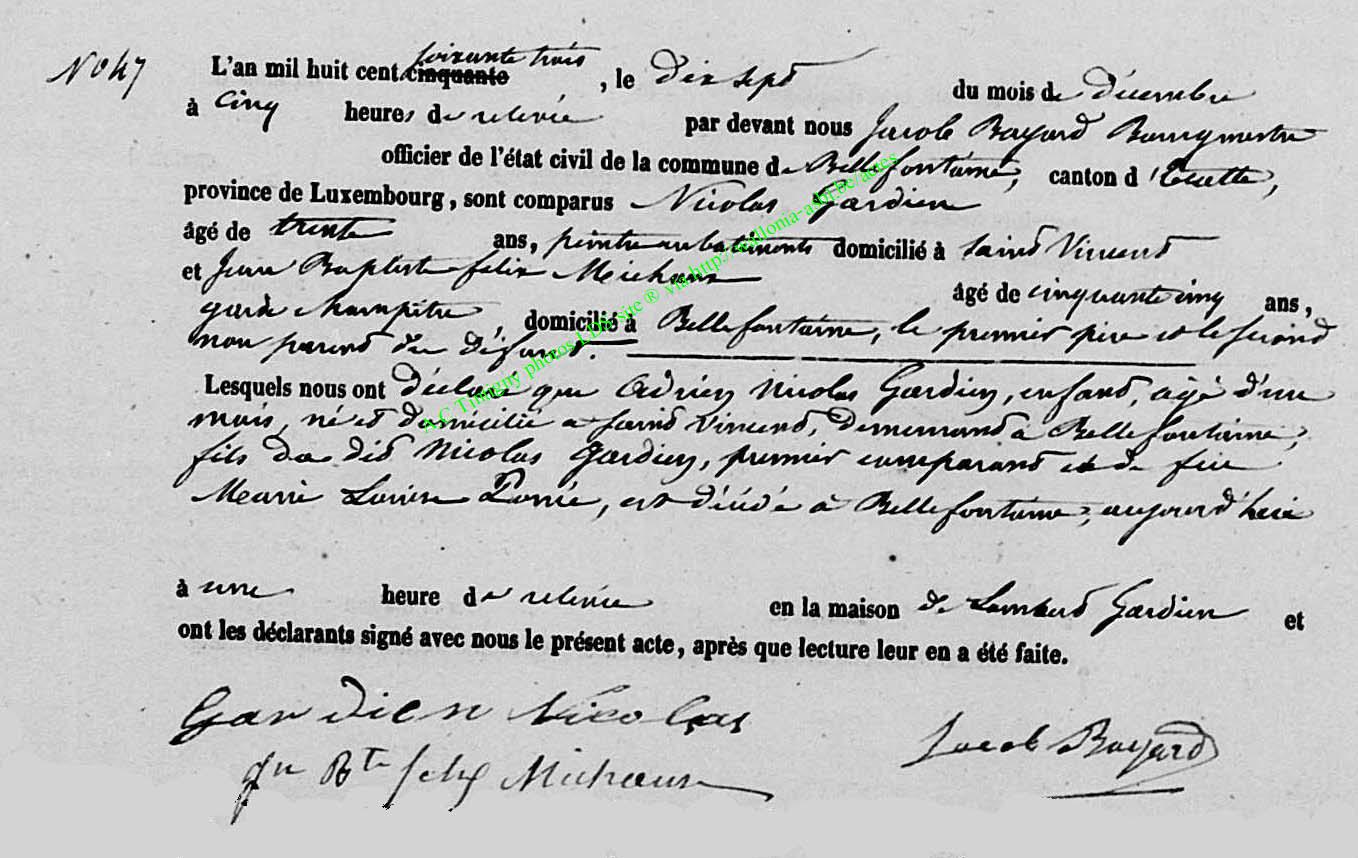 No 47
L'an mil huit cent cinquante soixante trois, le dix sept du mois de décembre
à cinq heures de relevée par devant nous Jacob Bayard Bourgmestre
officier de l'état civil de la commune de Bellefontaine, canton d'Etalle,
province de Luxembourg, sont comparus Nicolas Gardien
âgé de trente ans, peintre en batiments domicilié à Saint Vincent
et Jean Baptiste felix Michaux
âgé de cinquante cinq ans,
garde champêtre, domicilié à Bellefontaine, le premier père et le second
non parent du défunt.
Lesquels nous ont déclaré que Adrien Nicolas Gardien, enfant, agé d'un
mois, né et domicilié a Saint Vincent, demeurant à Bellefontaine,
fils du dit Nicolas Gardien, premier comparant et de feue
Marie Louise, est décédé à Bellefontaine, aujourd'hui
à une heure de relevée en la maison de Lambert Gardien et
ont les déclarants signé avec nous le présent acte, après que lecture leur en a été faite.
Gardien Nicolas
Jacob Bayard
Jn Bte felix Michaux
A.C Tintigny photos LDB site ® via http://wallonia-asbl.be/actes